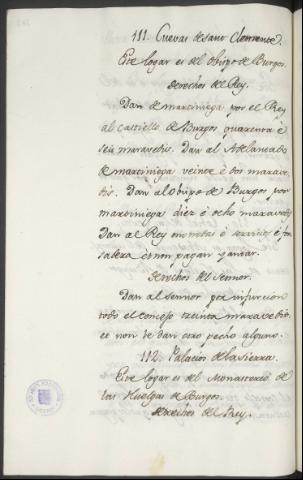 111. Cuevas de sant Clemente.
Este logar es del obispo de Burgos.
derechos del Rey.
Dan de marciniega por el Rey
al castiello de Burgos quarenta é
seis maravedis. Dan al Adelantado
de marciniega veinte é dos marave-
dis. Dan al Obispo de Burgos por
marciniega diez é ocho maravedis
Dan al Rey monedas é servicios é fon-
sadera et non pagan yantar.
derechos del sennor.
Dan al sennor por infurcion
todo el concejo treinta maravedis
et non le dan otro pecho alguno.
112. Palacios de la sierra.
Este logar es del Monasterio de
las Huelgas de Burgos.
derechos del Rey.